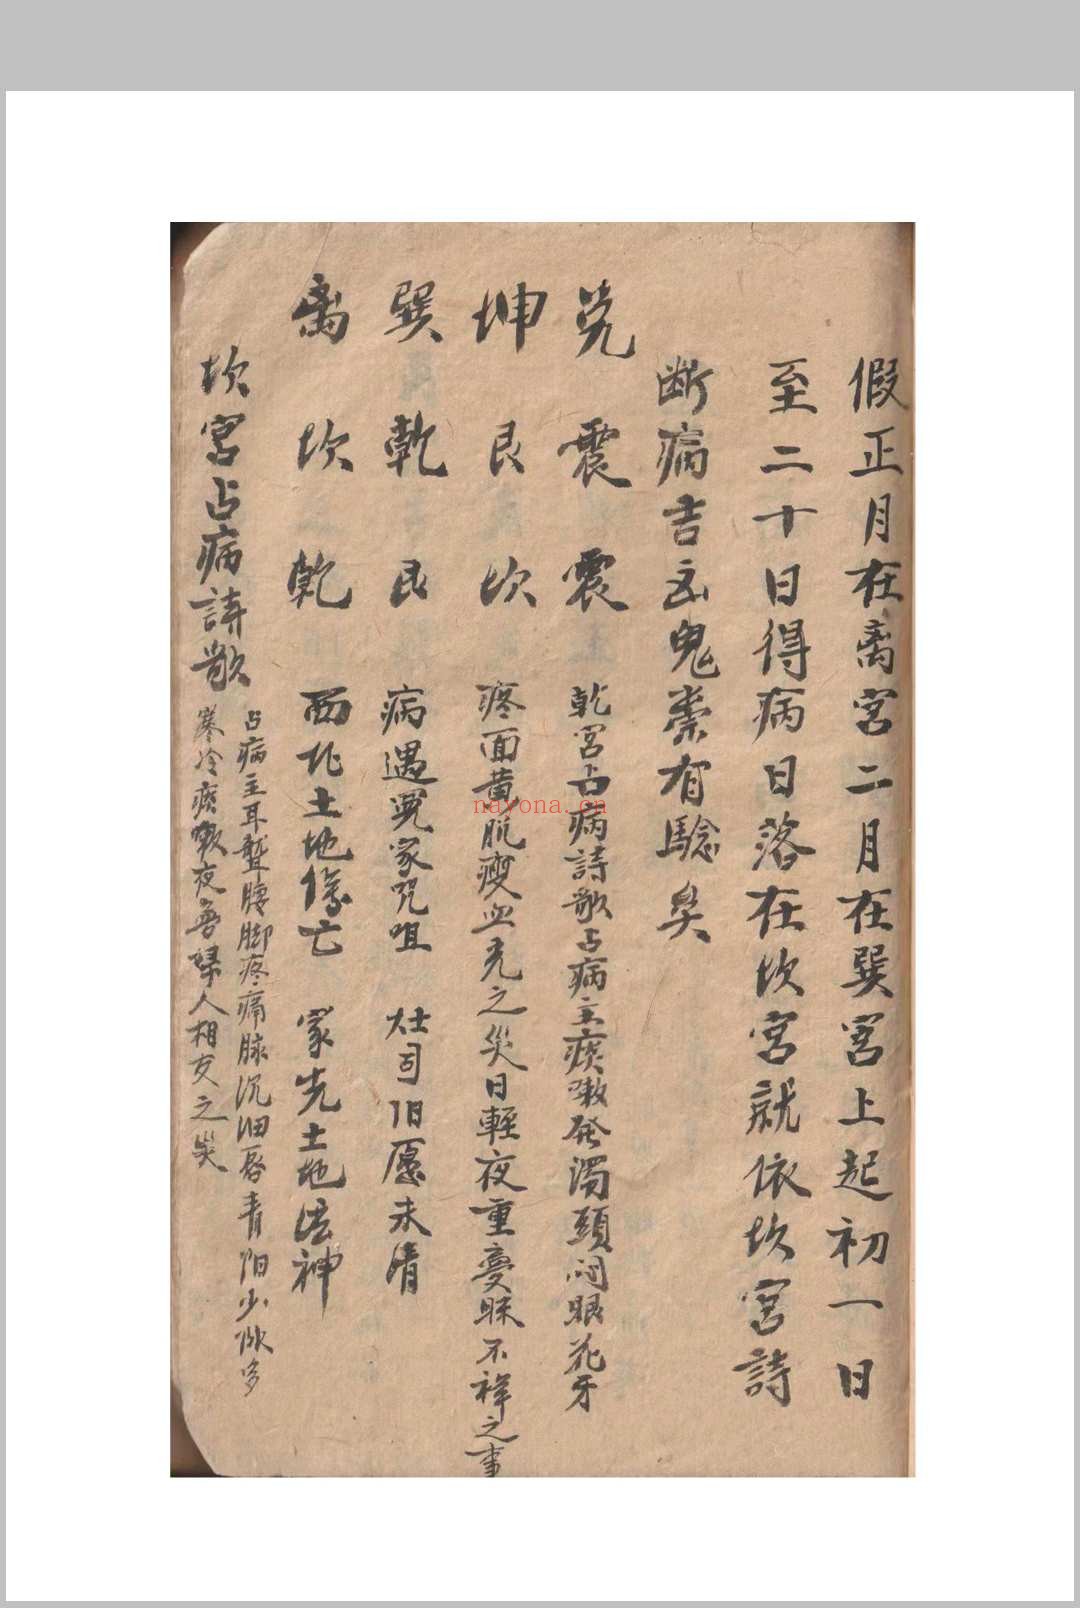 假正月在离宫二月在巽宫上起初一日
至二十日得病日落在坎宫就依坎宫詩
断病吉凶鬼祟有驗矣
兑 震 震 乾宫占病詩歌占病主痰嗽發濁頭悶眼花牙
坤 艮 坎 疼面黄肌瘦血光之災日輕夜重憂眛不祥之事
巽 乾 艮 病遇冤家咒咀 灶司旧愿未清
离 坎 乾 西北土地傷亡 家先土地法神
坎宫占病詩歌
占病主耳聾腰脚疼痛脉沉 唇青阳少阴多
寒冷痰嗽夜夢婦人相交之災
nayona.cn